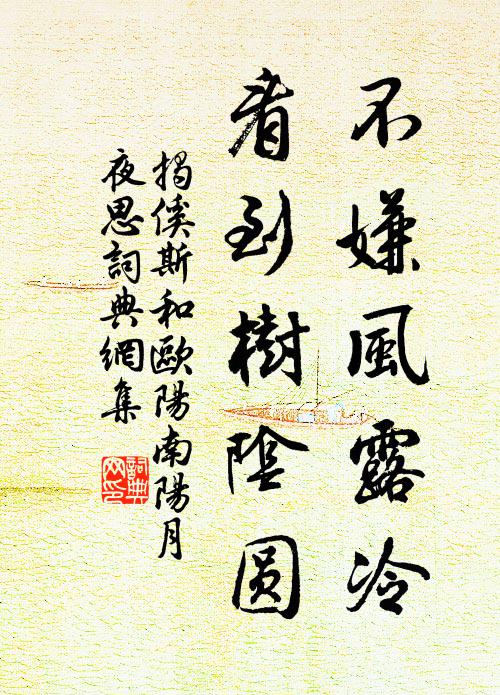 不嫌風露冷
看到樹陰圓
揭傒斯和歐陽南陽月
夜思詞典網集
詞典网印